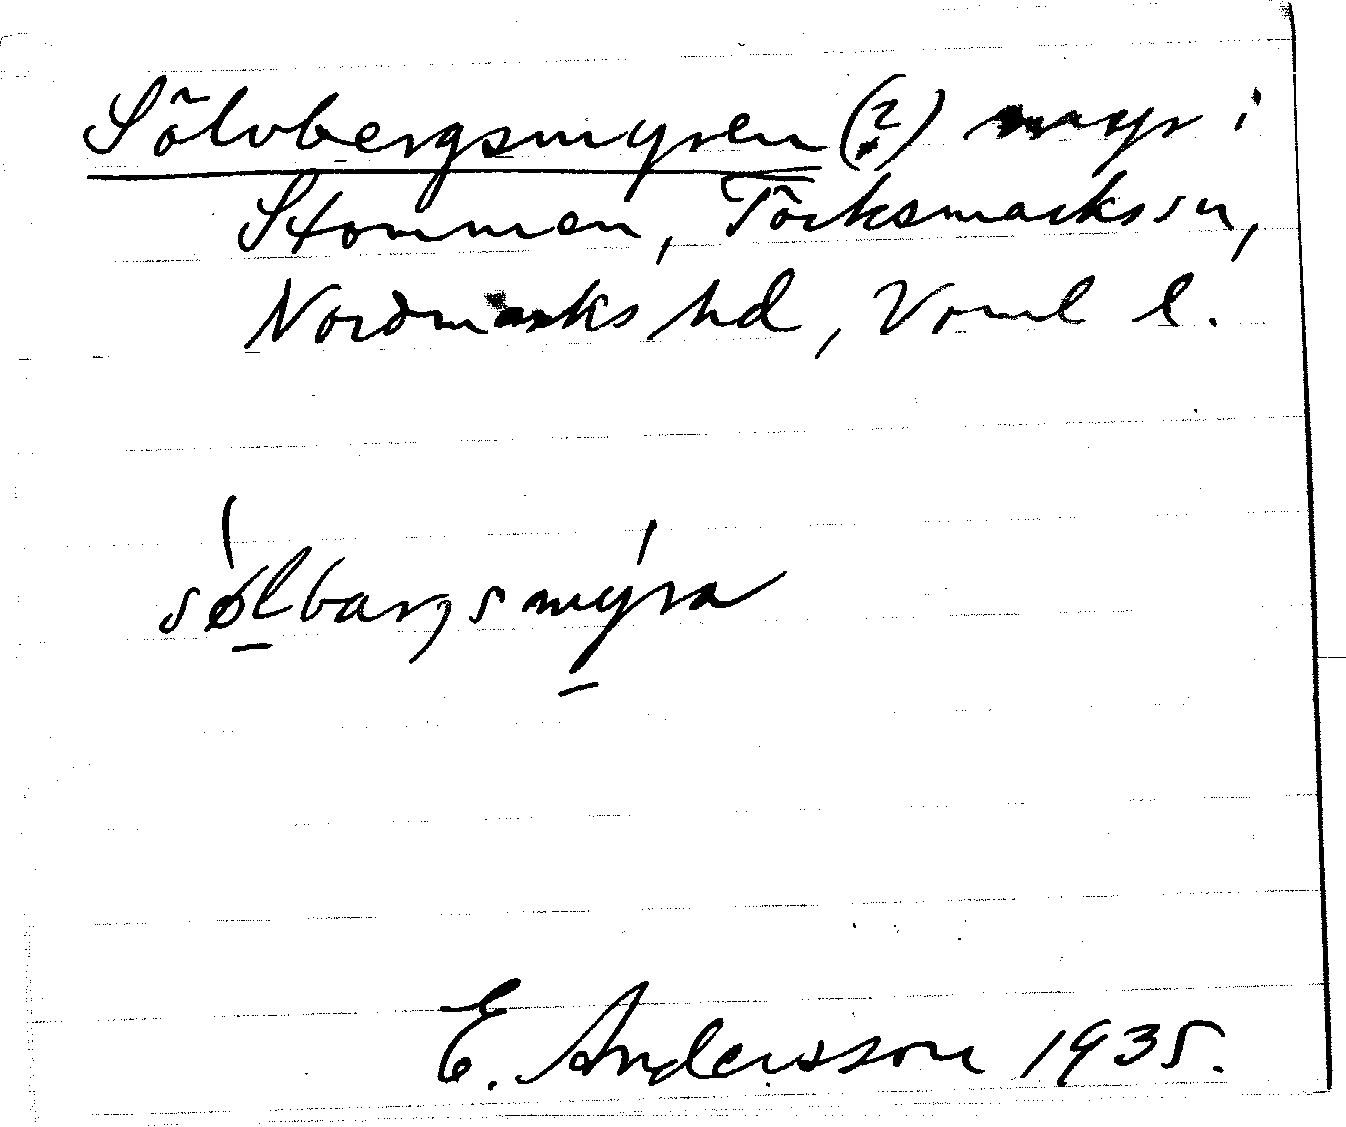 Sölvbergsmyren (?) myr i
Stommen, Töcksmarks sn,
Nordmarks hd, Vrml l.
sølbarʒsmyra
E. Andersson 1935.